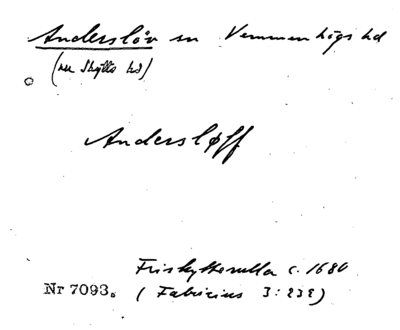 Anderslöv sn Vemmenhögs hd
(nu Skytts hd)
Andersløff
Friskytterulla c. 1680
Nr 7093. (Fabricius 3:232)